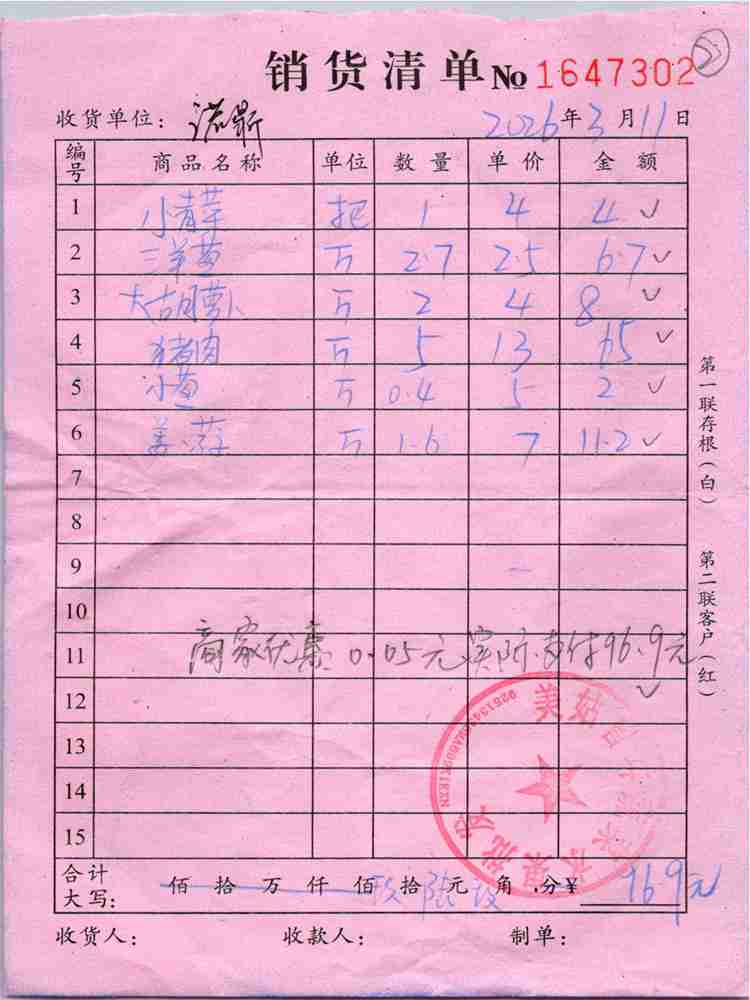 销货清单 № 1647302 ②
收货单位: 诺鼎 2026年3月11日
编号 商品名称 单位 数量 单价 金额
1 小青芊 把 1 4 4 ✓
2 三洋葱 斤 2.7 2.5 6.7 ✓
3 大胡萝卜 斤 2 4 8 ✓
4 猪肉 斤 5 13 65 ✓
5 小葱 斤 0.4 5 2 ✓
6 斤 1.6 7 11.2 ✓
7
8
9
10
11 商家优惠 0.05元实际支付96.9元
12 ✓
13
14
15
美姑
合计大写: 佰拾万仟佰玖拾陆元玖角分¥ 96.9元
收货人: 收款人: 制单:
第一联存根(白) 第二联客户(红)